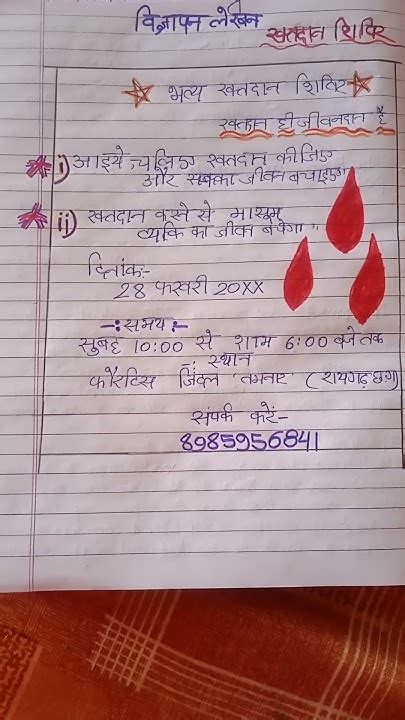 विज्ञापन लेखन
रक्तदान शिविर
भव्य रक्तदान शिविर
रक्तदान ही जीवनदान है
i) आइये, चलिए रक्तदान कीजिए
और सबका जीवन बचाइए
ii) रक्तदान करने से मासूम
व्यक्ति का जीवन बचेगा।
दिनांक:-
28 फरवरी 20XX
-: समय :-
सुबह 10:00 से शाम 6:00 बजे तक
-: स्थान
फोरटिस जिंदल तमनार (रायगढ़ छग)
संपर्क करें-
8985956841